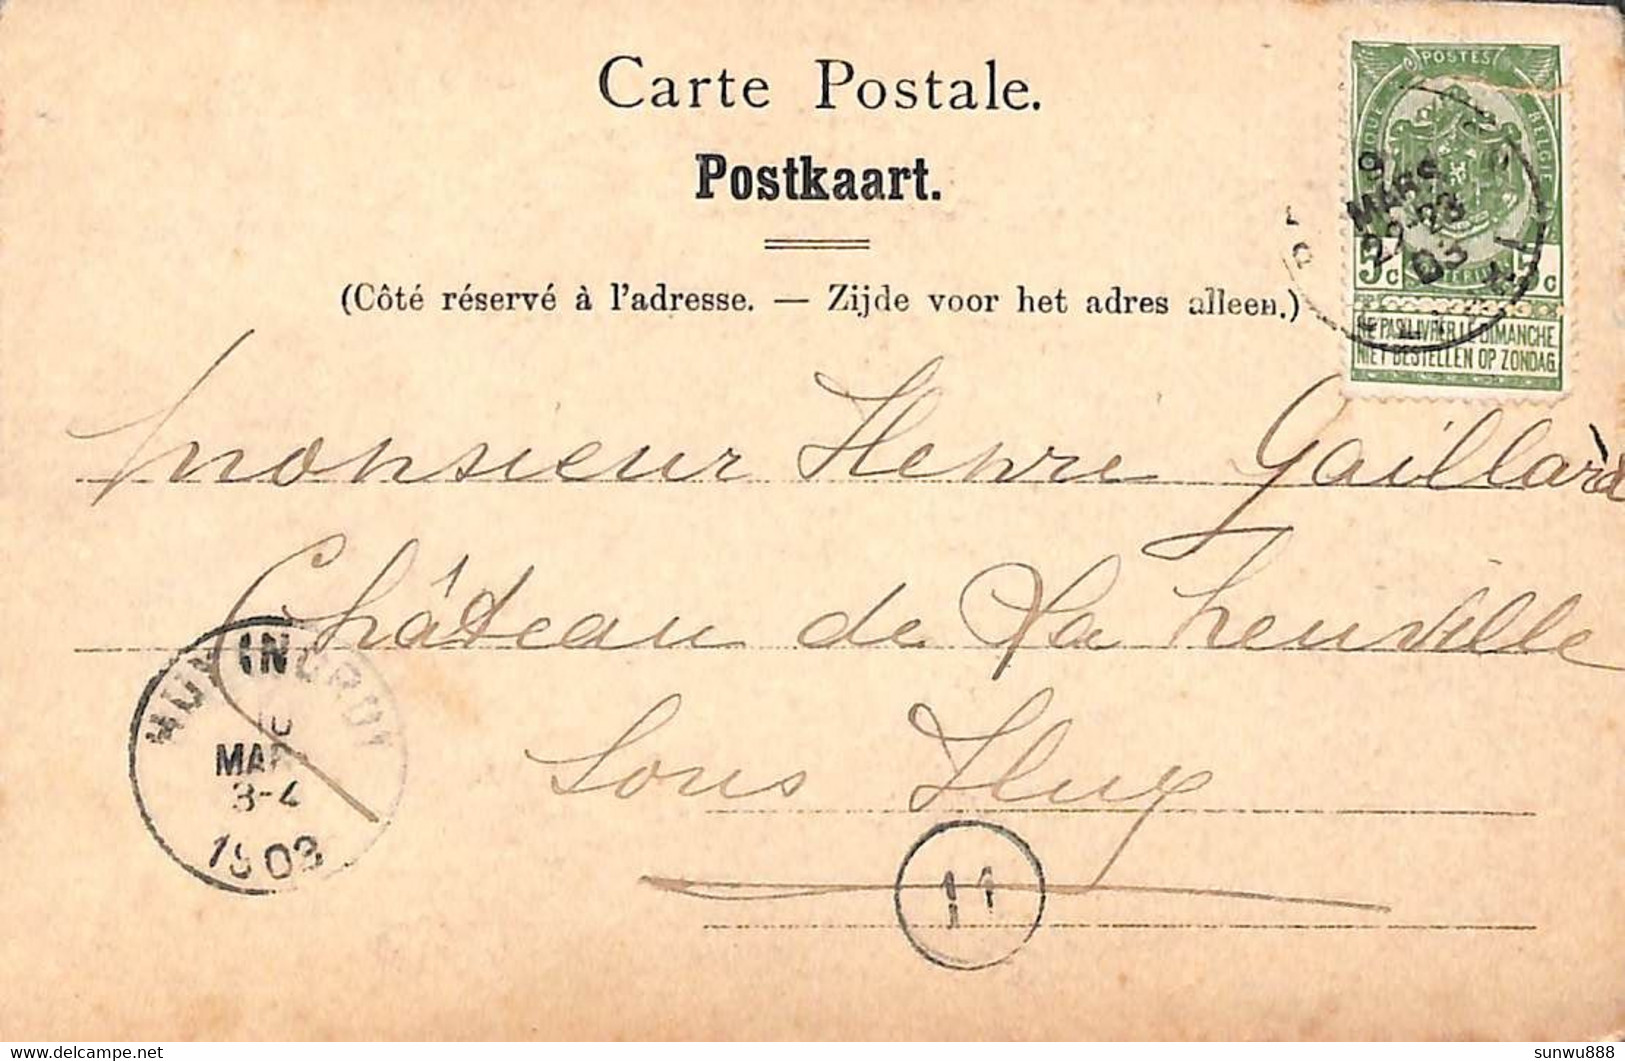 Carte Postale.
Postkaart.
(Côté réservé à l'adresse. — Zijde voor het adres alleen.)
POSTES
BELGIE
5c 5c
NE PAS LIVRER LE DIMANCHE
NIET BESTELLEN OP ZONDAG
9
MARS
22-23
03
Monsieur Henri Gaillard
Château de La neuville
Sous Huy
HUY
10
MAR
3-4
1903
11
sunwu888